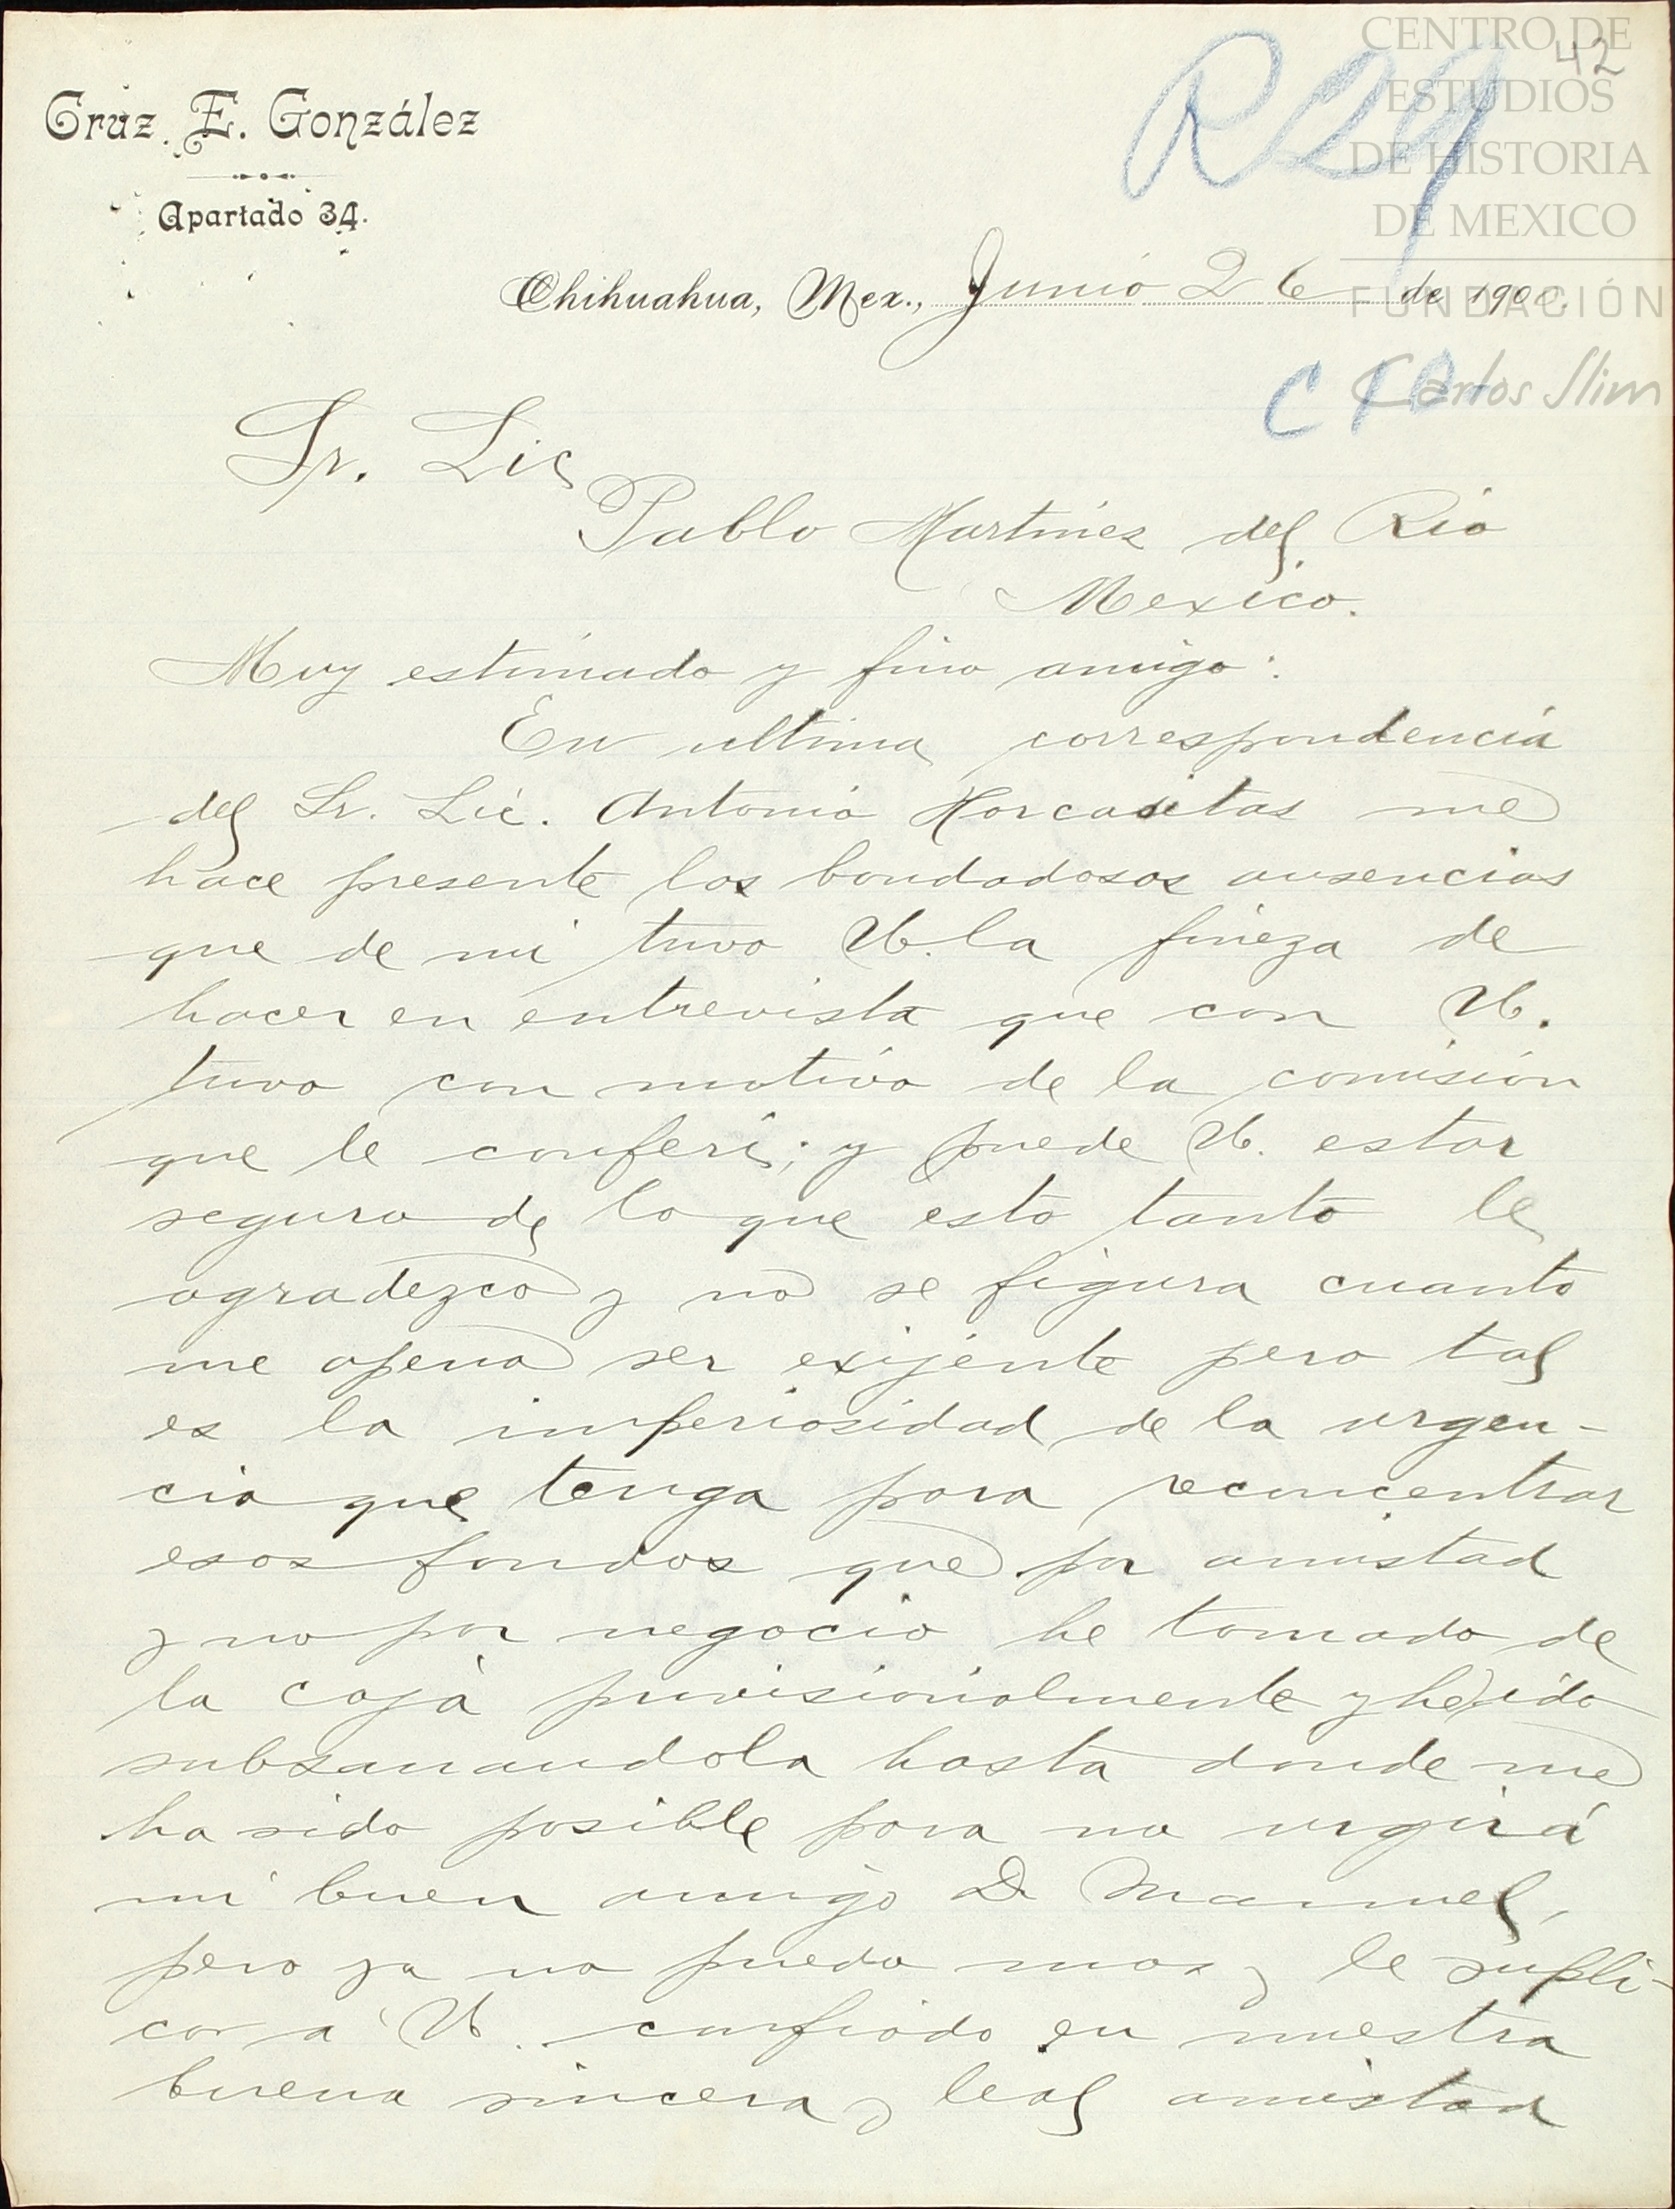 42
R29
Cruz. E. González
Apartado 34.
Chihuahua, Mex., Junio 26 de 1900.
Sr. Lic
Pablo Martinez del Rio
Mexico.
Muy estimado y fino amigo:
En ultima correspondencia
del Sr. Lic. Antonio Horcasitas me
hace presente las bondadosas ausencias
que de mi tuvo U. la fineza de
hacer en entrevista que con U.
tuvo con motivo de la comision
que le conferi; y puede U. estar
seguro de lo que esto tanto le
agradezco y no se figura cuanto
me apena ser exijente pero tal
es la imperiosidad de la urgen-
cia que tengo para reconcentrar
esos fondos que por amistad
y no por negocio he tomado de
la caja provisionalmente y he ido
subsanandola hasta donde me
ha sido posible para no urgir á
mi buen amigo D Manuel,
pero ya no puedo mas y le supli-
co a U. confiado en nuestra
buena sincera y leal amistad
CENTRO DE
ESTUDIOS
DE HISTORIA
DE MEXICO
FUNDACIÓN
Carlos Slim